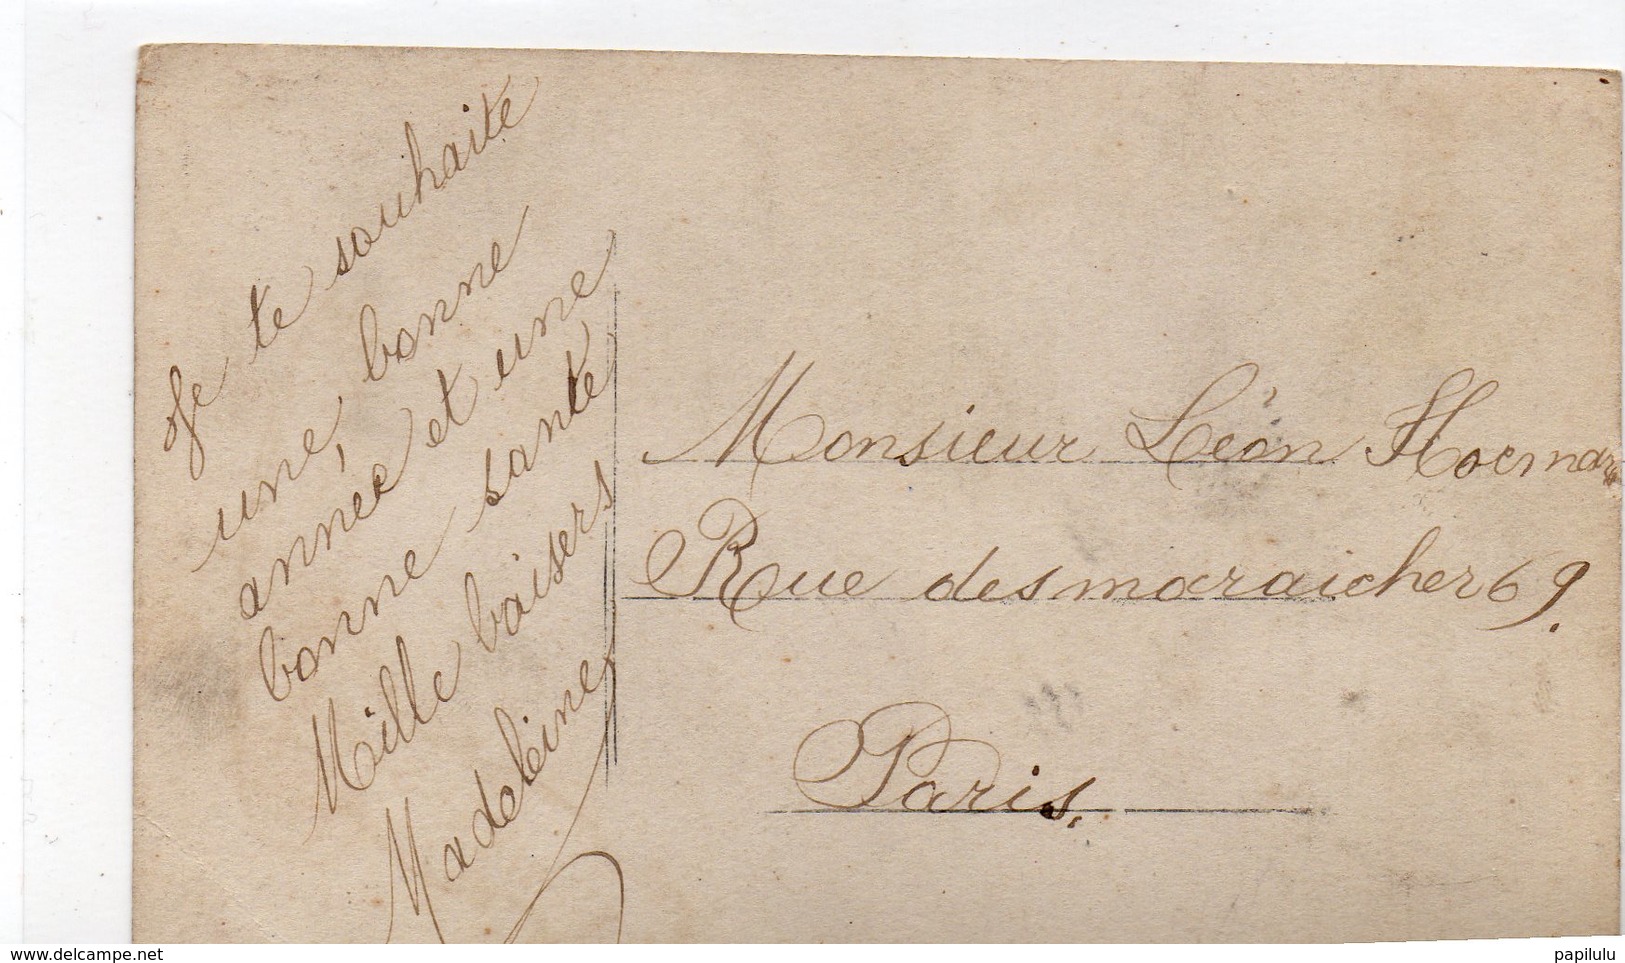 Je te souhaite
une, bonne
année et une
bonne santé
Mille baisers
Madeleine
Monsieur Léon
Rue des maraicher 69.
Paris.
delcampe.net
papilulu